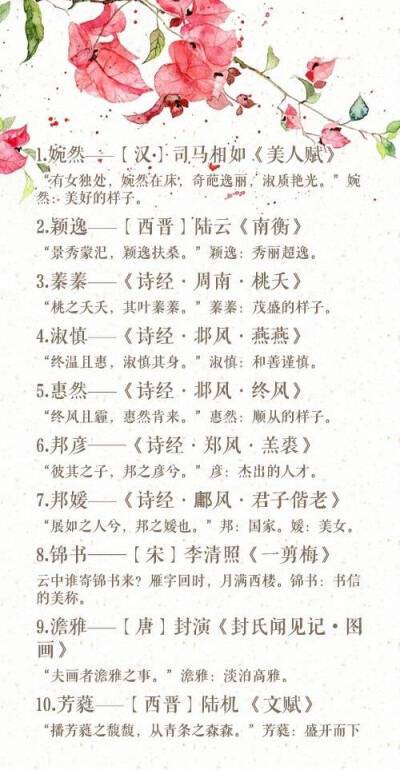 1.婉然——［汉］司马相如《美人赋》
“有女独处，婉然在床，奇葩逸丽，淑质艳光。”婉
然：美好的样子。
2.颖逸——［西晋］陆云《南衡》
“景秀蒙汜，颖逸扶桑。”颖逸：秀丽超逸。
3.蓁蓁——《诗经·周南·桃夭》
“桃之夭夭，其叶蓁蓁。”蓁蓁：茂盛的样子。
4.淑慎——《诗经·邶风·燕燕》
“终温且惠，淑慎其身。”淑慎：和善谨慎。
5.惠然——《诗经·邶风·终风》
“终风且霾，惠然肯来。”惠然：顺从的样子。
6.邦彦——《诗经·郑风·羔裘》
“彼其之子，邦之彦兮。”彦：杰出的人才。
7.邦媛——《诗经·鄘风·君子偕老》
“展如之人兮，邦之媛也。”邦：国家。媛：美女。
8.锦书——［宋］李清照《一剪梅》
云中谁寄锦书来？雁字回时，月满西楼。锦书：书信
的美称。
9.澹雅——［唐］封演《封氏闻见记·图
画》
“夫画者澹雅之事。”澹雅：淡泊高雅。
10.芳蕤——［西晋］陆机《文赋》
“播芳蕤之馥馥，从青条之森森。”芳蕤：盛开而下